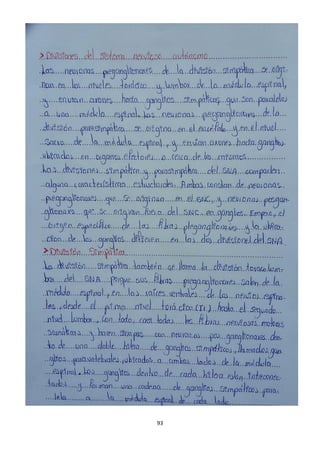 > Divisiones del Sistema nervioso autónomo
Las neuronas preganglionares de la división simpática se origi-
nan en los niveles torácico y lumbar de la médula espinal,
y envían axones hasta ganglios simpáticos que son paralelos
a una médula espinal. Las neuronas preganglionares de la
división parasimpática se origina en el encéfalo y en el nivel
Sacro de la médula espinal, y envían axones hasta ganglios
ubicados en órganos efectores o cerca de los mismos
Las divisiones simpática y parasimpática del SNA comparten
alguna característica estructurales. Ambas constan de neuronas
preganglionares que se originan en el SNC, y neuronas posgan-
glionares que se originan fuera del SNC en ganglios. Empero, el
origen específico de las fibras preganglionares y la ubica-
ción de los ganglios difieren en las dos divisiones del SNA
> División Simpática
La división simpática también se llama la división toracolum-
bar del SNA porque sus fibras preganglionares salen de la
médula espinal, en las raíces ventrales de los nervios espina-
les, desde el primer nivel torácico (T1) hasta el segundo
nivel lumbar, con todo, casi todas las fibras nerviosas motoras
somáticas y hacen sinapsis con neuronas posganglionares den-
tro de una doble hilera de ganglios simpáticos, llamados gan-
glios paravertebrales, ubicados a ambos lados de la médula
espinal. Los ganglios dentro de cada hilera están interconec-
tados y forman una cadena de ganglios simpáticos para-
lela a la médula espinal de cada lado
93